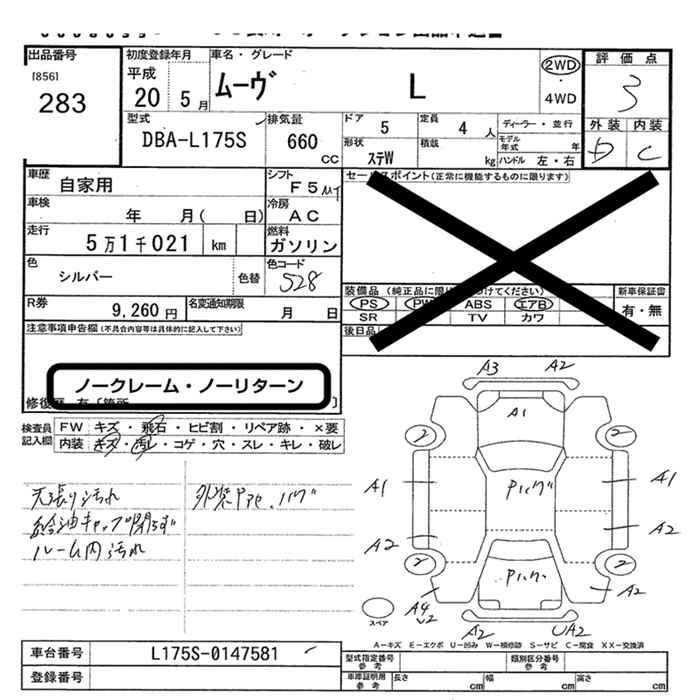 出品番号
[856]
283
初度登録年月
平成
20 5 月
車名・グレード
ムーヴ L
2WD
・
4WD
評価点
3
外装 内装
D C
型式
DBA-L175S
排気量
660
CC
ドア
5
定員
4 人
ディーラー・並行
モデル年式 年
形状
ステW
積載
kg
ハンドル 左・右
車歴
自家用
シフト
F5
車検
年 月( 日)
冷房
AC
走行
5万1千021 km
燃料
ガソリン
色
シルバー
色替
色コード
S28
R券
9,260 円
名変通知期限
月 日
セールスポイント(正常に機能するものに限ります)
装備品(純正品に限り
つけてください)
新車保証書
PS PW ABS エアB
有・無
SR TV カワ
後日品
注意事項申告欄(不具合内容等は具体的に記入して下さい)
ノークレーム・ノーリターン
検査員記入欄
FW キズ・飛石・ヒビ割・リペア跡・×要
内装 キズ・汚レ・コゲ・穴・スレ・キレ・破レ
天張り汚れ
給油キャップ閉らず
ルーム内汚れ
A3 A2
A1
2 2
A1 A1
A2 A2
2 2
A4 A2
A2 UA2
スペア
A-キズ E-エクボ U-凹み W-補修跡 S-サビ C-腐食 XX-交換済
車台番号
L175S-0147581
登録番号
型式指定番号
参考
類別区分番号
参考
車庫証明用
参考
長さ cm
幅 cm
高さ cm